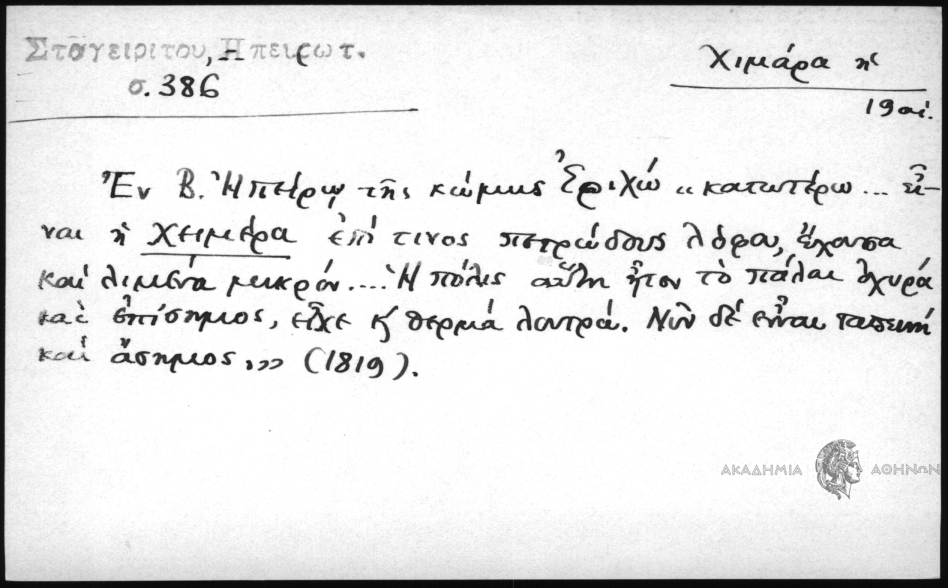 Σταγειρίτου, Ηπειρωτ.
σ. 386
Χιμάρα ἡ
19 αἰ.
Ἐν Β. Ἠπείρῳ τῆς κώμης Ἐριχώ „κατωτέρω... εἶ-
ναι ἡ Χειμέρα ἐπί τινος πετρώδους λόφου, ἔχουσα
καὶ λιμένα μικρόν.... Ἡ πόλις αὕτη ἦτον τὸ πάλαι ὀχυρά
καὶ ἐπίσημος, εἶχε κ' θερμά λουτρά. Νῦν δέ εἶναι ταπεινή
καὶ ἄσημος„» (1819).
ΑΚΑΔΗΜΙΑ ΑΘΗΝΩΝ